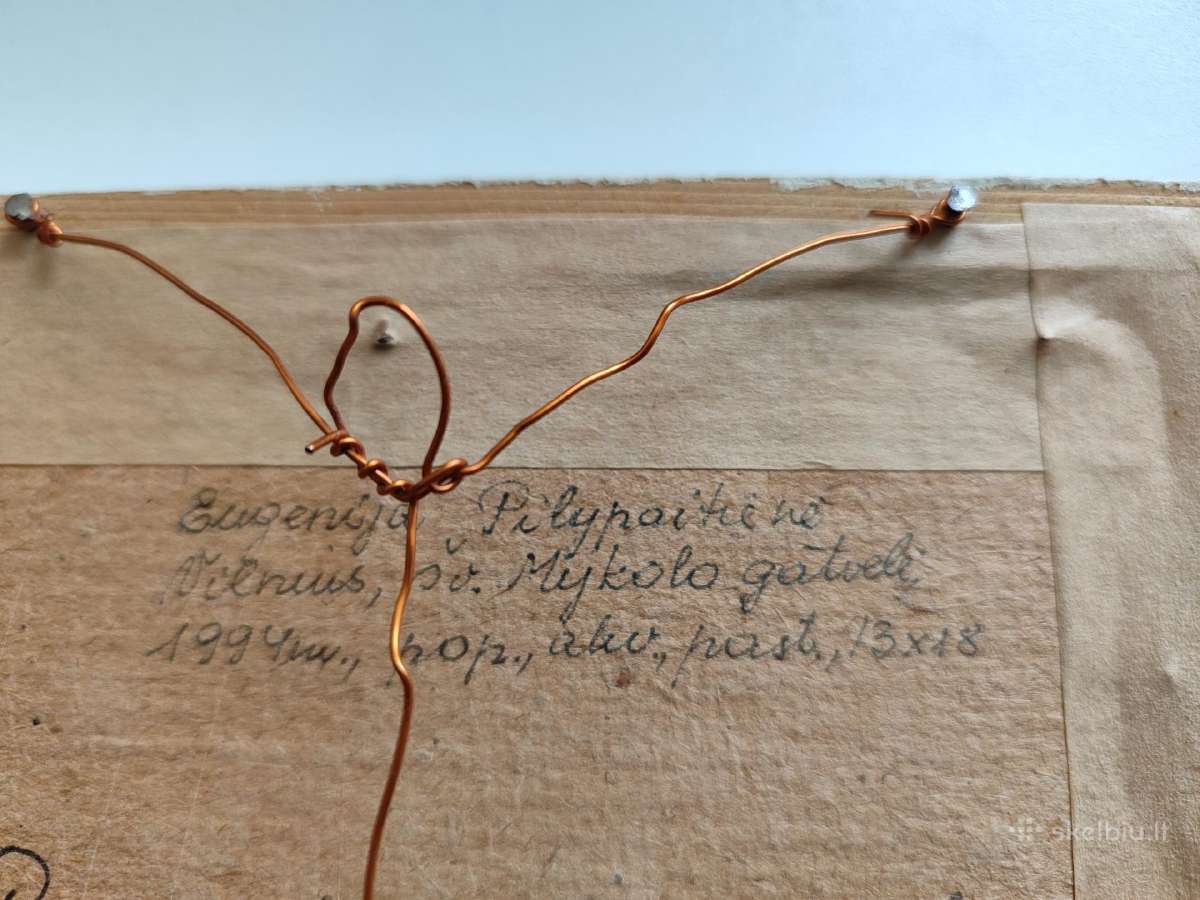 Eugenija Pilypaitienė
Vilnius, Šv. Mykolo gatvelė,
1994m., pop., akv., past., 13x18
skelbiu.lt